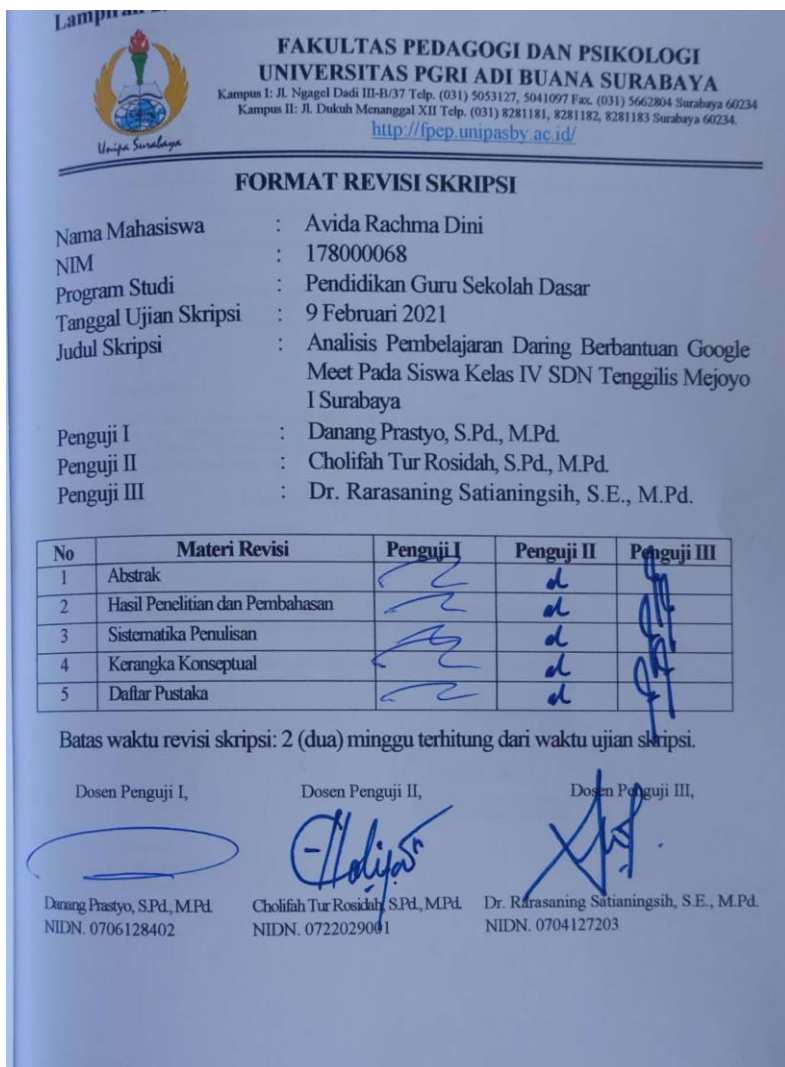 Lampiran
FAKULTAS PEDAGOGI DAN PSIKOLOGI
UNIVERSITAS PGRI ADI BUANA SURABAYA
Kampus I: Jl. Ngagel Dadi III-B/37 Telp. (031) 5053127, 5041097 Fax. (031) 5662804 Surabaya 60234
Kampus II: Jl. Dukuh Menanggal XII Telp. (031) 8281181, 8281182, 8281183 Surabaya 60234.
http://fpep.unipasby.ac.id/
Unipa Surabaya
FORMAT REVISI SKRIPSI
Nama Mahasiswa : Avida Rachma Dini
NIM : 178000068
Program Studi : Pendidikan Guru Sekolah Dasar
Tanggal Ujian Skripsi : 9 Februari 2021
Judul Skripsi : Analisis Pembelajaran Daring Berbantuan Google
Meet Pada Siswa Kelas IV SDN Tenggilis Mejoyo
I Surabaya
Penguji I : Danang Prastyo, S.Pd., M.Pd.
Penguji II : Cholifah Tur Rosidah, S.Pd., M.Pd.
Penguji III : Dr. Rarasaning Satianingsih, S.E., M.Pd.
No Materi Revisi Penguji I Penguji II Penguji III
1 Abstrak
2 Hasil Penelitian dan Pembahasan
3 Sistematika Penulisan
4 Kerangka Konseptual
5 Daftar Pustaka
Batas waktu revisi skripsi: 2 (dua) minggu terhitung dari waktu ujian skripsi.
Dosen Penguji I, Dosen Penguji II, Dosen Penguji III,
Danang Prastyo, S.Pd., M.Pd. Cholifah Tur Rosidah, S.Pd., M.Pd. Dr. Rarasaning Satianingsih, S.E., M.Pd.
NIDN. 0706128402 NIDN. 0722029001 NIDN. 0704127203